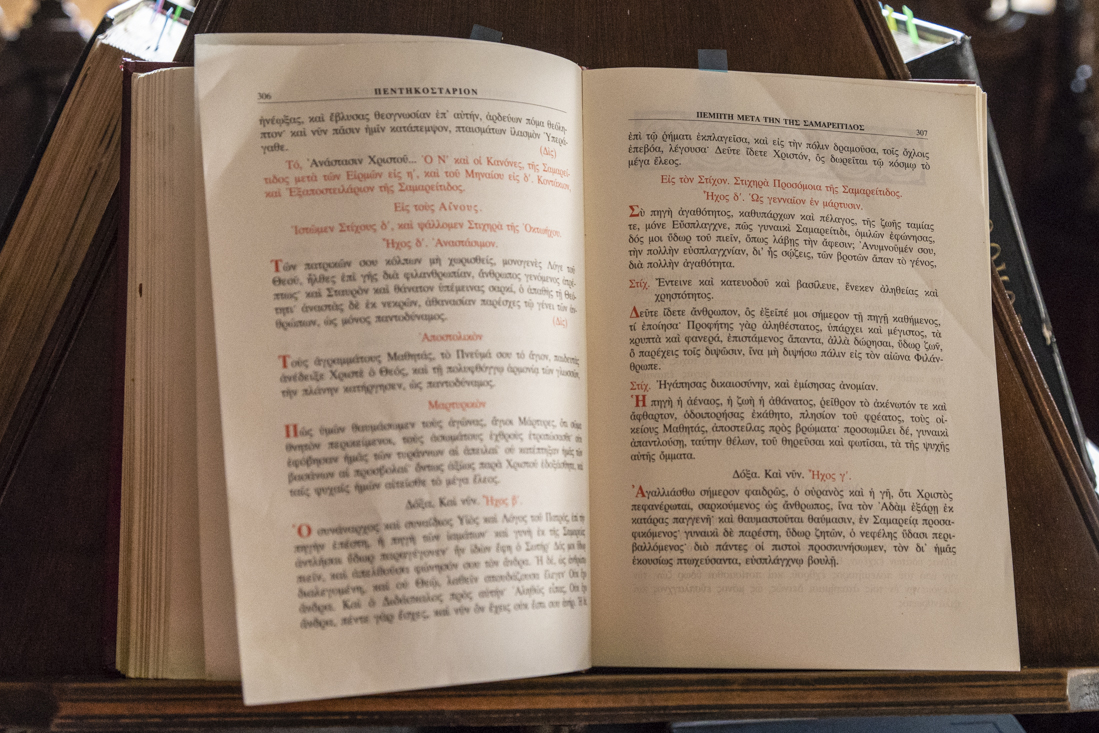 306
ΠΕΝΤΗΚΟΣΤΑΡΙΟΝ
ἠνέῳξας, καὶ ἔβλυσας θεογνωσίαν ἐπ' αὐτήν, ἀρδεύων πόμα θεόλη-
πτον· καὶ νῦν πᾶσιν ἡμῖν κατάπεμψον, πταισμάτων ἱλασμὸν Ὑπερά-
γαθε.
(Δίς)
Τό, Ἀνάστασιν Χριστοῦ... Ὁ Ν΄ καὶ οἱ Κανόνες, τῆς Σαμαρεί-
τιδος μετὰ τῶν Εἱρμῶν εἰς η΄. καὶ τοῦ Μηναίου εἰς δ΄. Κοντάκιον,
καὶ Ἐξαποστειλάριον τῆς Σαμαρείτιδος.
Εἰς τοὺς Αἴνους.
Ἱστῶμεν Στίχους δ΄. καὶ ψάλλομεν Στιχηρὰ τῆς Ὀκτωήχου.
Ἦχος δ΄. Ἀναστάσιμον.
Τῶν πατρικῶν σου κόλπων μὴ χωρισθείς, μονογενὲς Λόγε τοῦ
Θεοῦ, ἦλθες ἐπὶ γῆς διὰ φιλανθρωπίαν, ἄνθρωπος γενόμενος ἀτρέ-
πτως· καὶ Σταυρὸν καὶ θάνατον ὑπέμεινας σαρκί, ὁ ἀπαθὴς τῇ Θεό-
τητι· ἀναστὰς δὲ ἐκ νεκρῶν, ἀθανασίαν παρέσχες τῷ γένει τῶν ἀν-
θρώπων, ὡς μόνος παντοδύναμος.
(Δίς)
Ἀποστολικὸν
Τοὺς ἀγραμμάτους Μαθητάς, τὸ Πνεῦμά σου τὸ ἅγιον, παιδευτὰς
ἀνέδειξε Χριστὲ ὁ Θεός, καὶ τῇ πολυφθόγγῳ ἁρμονίᾳ τῶν γλωσσῶν,
τὴν πλάνην κατήργησεν, ὡς παντοδύναμος.
Μαρτυρικὸν
Πῶς ὑμῶν θαυμάσωμεν τοὺς ἀγῶνας, ἅγιοι Μάρτυρες, ὅτι σῶμα
θνητὸν περικείμενοι, τοὺς ἀσωμάτους ἐχθροὺς ἐτροπώσασθε· οὐκ
ἐφόβησαν ὑμᾶς τῶν τυράννων αἱ ἀπειλαί· οὐ κατέπτηξαν ὑμᾶς τῶν
βασάνων αἱ προσβολαί· ὄντως ἀξίως παρὰ Χριστοῦ ἐδοξάσθητε, καὶ
ταῖς ψυχαῖς ἡμῶν αἰτεῖσθε τὸ μέγα ἔλεος.
Δόξα. Καὶ νῦν. Ἦχος β΄.
Ὁ συνάναρχος καὶ συναΐδιος Υἱὸς καὶ Λόγος τοῦ Πατρός, ἐπὶ τὴν
πηγὴν ἐπέστη, ἡ πηγὴ τῶν ἰαμάτων· καὶ γυνὴ ἐκ τῆς Σαμαρείας
ἀντλῆσαι ὕδωρ παραγέγονεν· ἣν ἰδὼν ἔφη ὁ Σωτήρ· Δός μοι ὕδωρ
πιεῖν, καὶ ἀπελθοῦσα φώνησόν σου τὸν ἄνδρα. Ἡ δέ, ὡς ἀνθρώπῳ
διαλεγομένη, καὶ οὐ Θεῷ, λαθεῖν σπουδάζουσα ἔλεγεν· Οὐκ ἔχω
ἄνδρα. Καὶ ὁ Διδάσκαλος πρὸς αὐτήν· Ἀληθῶς εἶπας, Οὐκ ἔχω
ἄνδρα, πέντε γὰρ ἔσχες, καὶ νῦν ὃν ἔχεις οὐκ ἔστι σου ἀνήρ. Ἡ δέ,
ΠΕΜΠΤΗ ΜΕΤΑ ΤΗΝ ΤΗΣ ΣΑΜΑΡΕΙΤΙΔΟΣ
307
ἐπὶ τῷ ῥήματι ἐκπλαγεῖσα, καὶ εἰς τὴν πόλιν δραμοῦσα, τοῖς ὄχλοις
ἐπεβόα, λέγουσα· Δεῦτε ἴδετε Χριστόν, ὃς δωρεῖται τῷ κόσμῳ τὸ
μέγα ἔλεος.
Εἰς τὸν Στίχον. Στιχηρὰ Προσόμοια τῆς Σαμαρείτιδος.
Ἦχος δ΄. Ὡς γενναῖον ἐν μάρτυσιν.
Σὺ πηγὴ ἀγαθότητος, καθυπάρχων καὶ πέλαγος, τῆς ζωῆς ταμίας
τε, μόνε Εὔσπλαγχνε, πῶς γυναικὶ Σαμαρείτιδι, ὁμιλῶν ἐφώνησας,
δός μοι ὕδωρ τοῦ πιεῖν, ὅπως λάβῃς τὴν ἄφεσιν; Ἀνυμνοῦμέν σου,
τὴν πολλὴν εὐσπλαγχνίαν, δι' ἧς σῴζεις, τῶν βροτῶν ἅπαν τὸ γένος,
διὰ πολλὴν ἀγαθότητα.
Στίχ. Ἔντεινε καὶ κατευοδοῦ καὶ βασίλευε, ἕνεκεν ἀληθείας καὶ
χρηστότητος.
Δεῦτε ἴδετε ἄνθρωπον, ὃς ἐξεῖπέ μοι σήμερον τῇ πηγῇ καθήμενος,
τί ἐποίησα· Προφήτης γὰρ ἀληθέστατος, ὑπάρχει καὶ μέγιστος, τὰ
κρυπτὰ καὶ φανερά, ἐπιστάμενος ἅπαντα, ἀλλὰ δώρησαι, ὕδωρ ζῶν,
ὃ παρέχεις τοῖς διψῶσιν, ἵνα μὴ διψήσω πάλιν εἰς τὸν αἰῶνα Φιλάν-
θρωπε.
Στίχ. Ἠγάπησας δικαιοσύνην, καὶ ἐμίσησας ἀνομίαν.
Ἡ πηγὴ ἡ ἀέναος, ἡ ζωὴ ἡ ἀθάνατος, ῥεῖθρον τὸ ἀκένωτόν τε καὶ
ἄφθαρτον, ὁδοιπορήσας ἐκάθητο, πλησίον τοῦ φρέατος, τοὺς οἰ-
κείους Μαθητάς, ἀποστείλας πρὸς βρώματα· προσωμίλει δέ, γυναικὶ
ἀπαντλούσῃ, ταύτην θέλων, τοῦ θηρεῦσαι καὶ φωτίσαι, τὰ τῆς ψυχῆς
αὐτῆς ὄμματα.
Δόξα. Καὶ νῦν. Ἦχος γ΄.
Ἀγαλλιάσθω σήμερον φαιδρῶς, ὁ οὐρανὸς καὶ ἡ γῆ, ὅτι Χριστὸς
πεφανέρωται, σαρκούμενος ὡς ἄνθρωπος, ἵνα τὸν Ἀδὰμ ἐξάρῃ ἐκ
κατάρας παγγενῆ· καὶ θαυμαστοῦται θαύμασιν, ἐν Σαμαρείᾳ προσα-
φικόμενος· γυναικὶ δὲ παρέστη, ὕδωρ ζητῶν, ὁ νεφέλης ὕδασι περι-
βαλλόμενος· διὸ πάντες οἱ πιστοὶ προσκυνήσωμεν, τὸν δι' ἡμᾶς
ἑκουσίως πτωχεύσαντα, εὐσπλάγχνῳ βουλῇ.